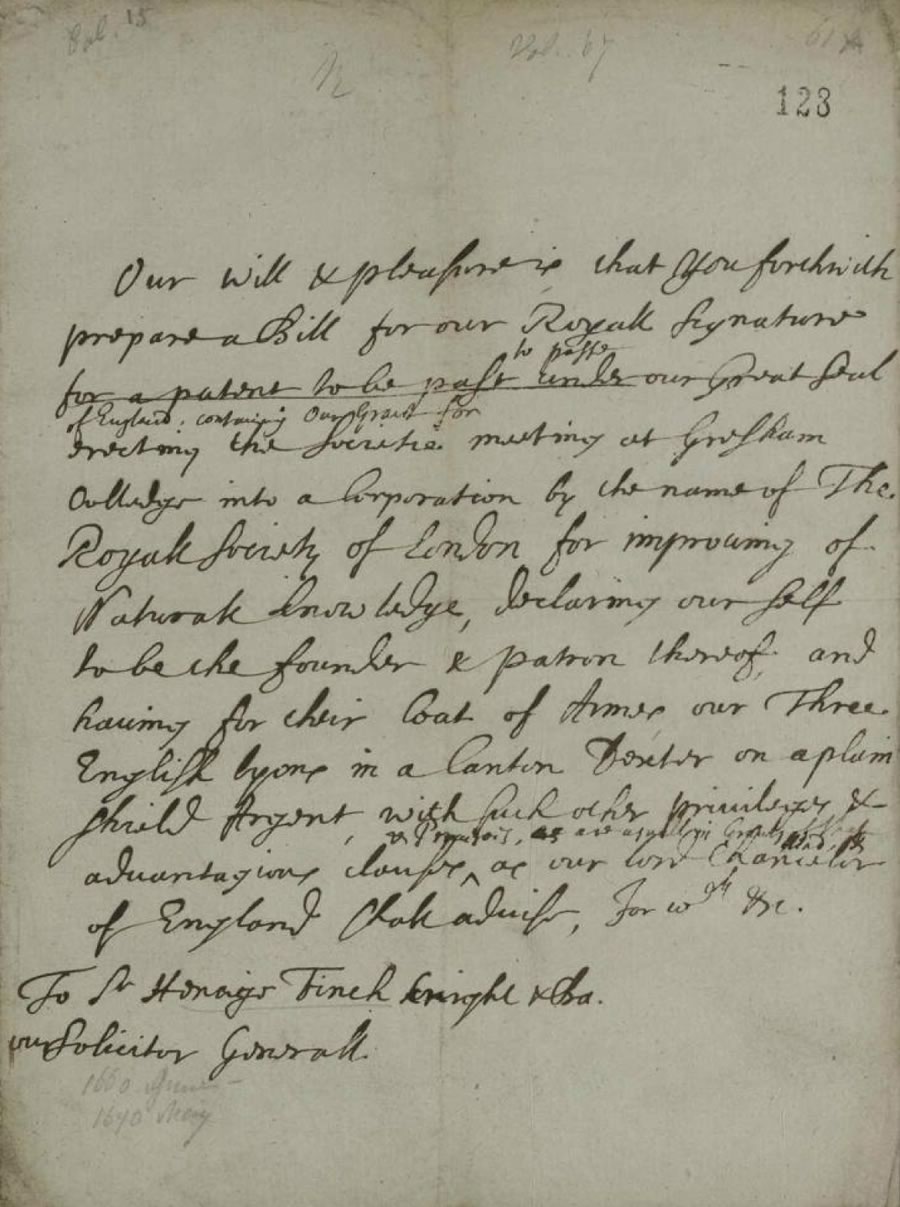 Vol. 15
Vol. 67
123
Our will & pleasure is that you forthwith
prepare a Bill for our Royall Signature
to passe
for a patent to be past under our Great Seal
of England, containing Our Grant for
erecting the Societie meeting at Gresham
Colledge into a Corporation by the name of The
Royall Society of London for improving of
Naturall knowledge, declaring our self
to be the founder & patron thereof, and
having for their Coat of Armes our Three
English Lyons in a Canton Dexter on a plain
shield Argent, with such other privileges &
& Provisos, as are usuall in Grants
advantagious clauses, ^ as our Lord Chancelor
of England shall advise, For wch &c.
To Sr Heneage Finch knight & Ba.
our Solicitor Generall
1660 June
1670 May